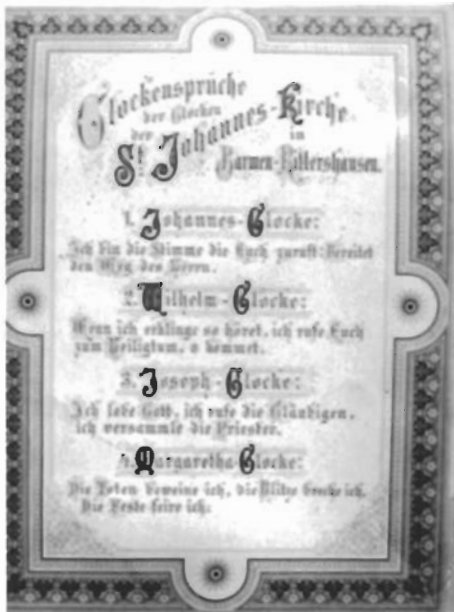 Glockensprüche
der Glocken
der
St. Johannes-Kirche
in
Barmen-Rittershausen.
1. Johannes-Glocke:
Ich bin die Stimme die Euch zuruft: Bereitet
den Weg des Herrn.
2. Wilhelm-Glocke:
Wenn ich erklinge so höret, ich rufe Euch
zum Heiligtum, o kommet.
3. Joseph-Glocke:
Ich lobe Gott, ich rufe die Gläubigen,
ich versammle die Priester.
4. Margaretha-Glocke:
Die Toten beweine ich, die Blitze breche ich,
Die Feste feire ich.